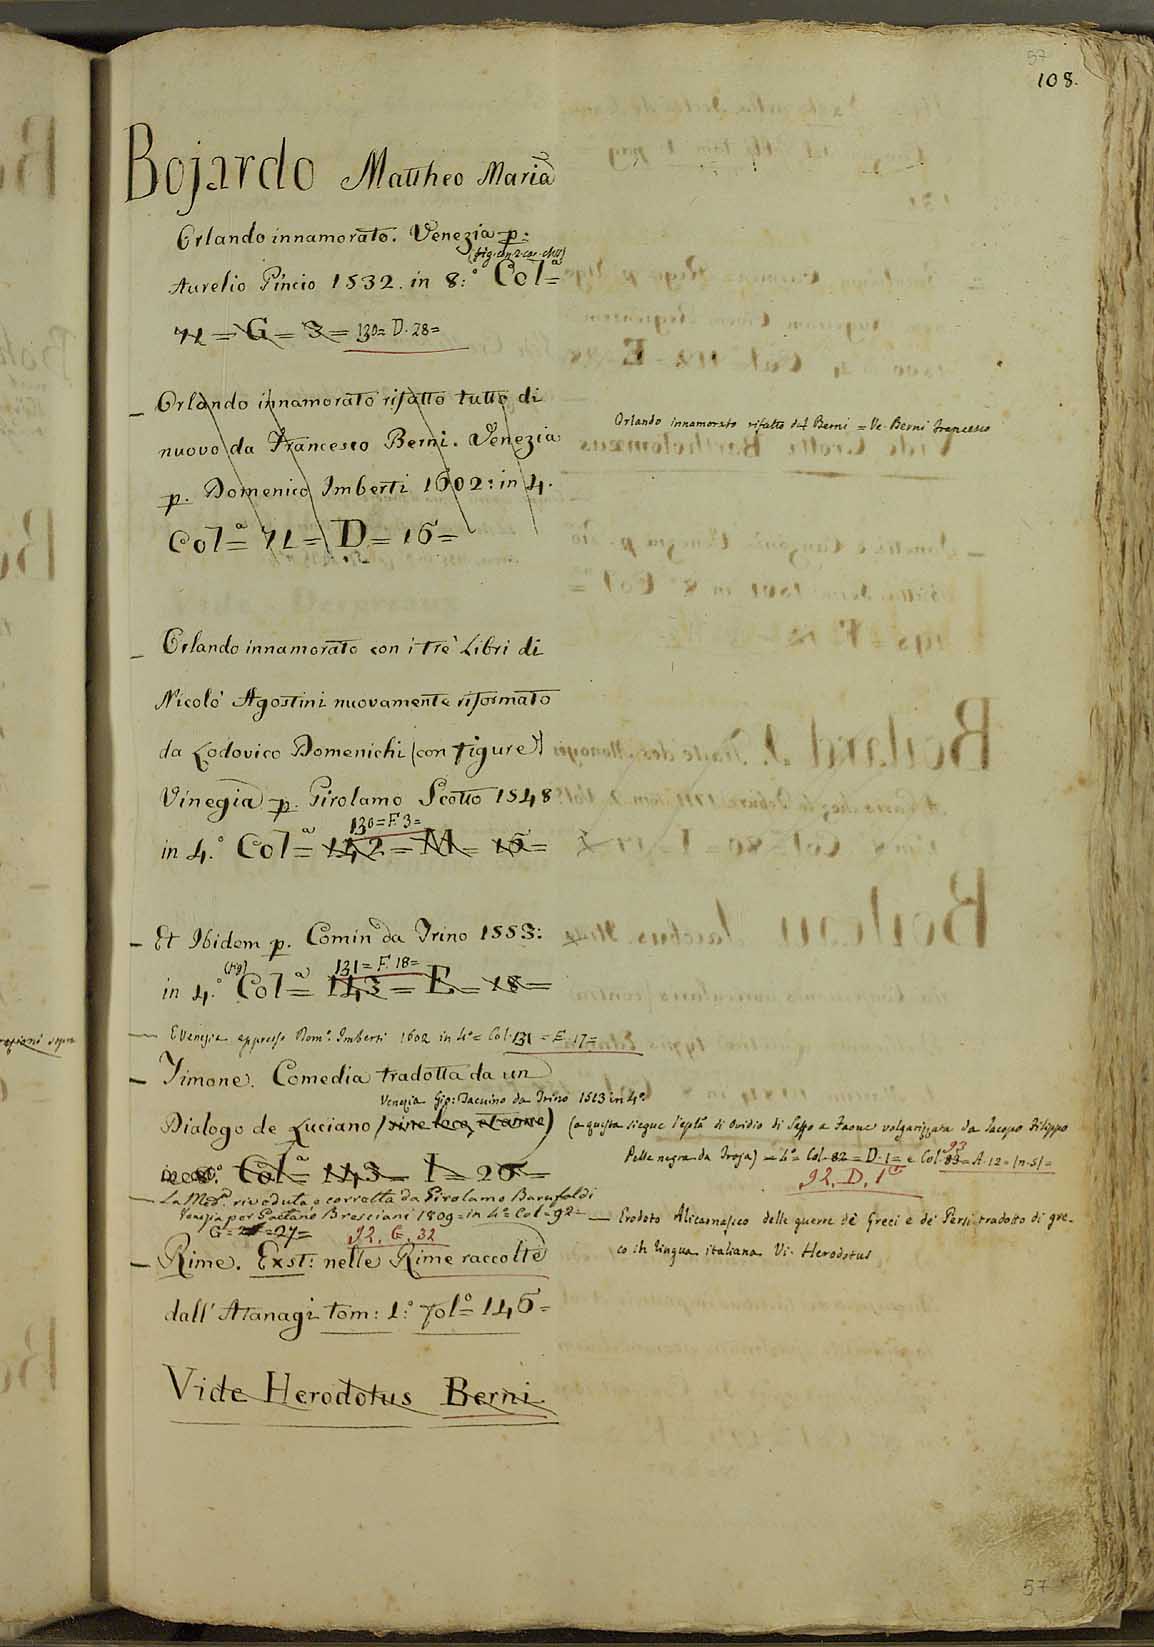 57
108.
Bojardo Mattheo Maria
Orlando innamorato. Venezia p:
(fig. con 2. cor. Mss)
Aurelio Pincio 1532. in 8:° Col=ª
71 = G = 3 = 130= D. 28=
– Orlando innamorato rifatto tutto di
nuovo da Francesco Berni. Venezia
p. Domenico Imberti 1602: in 4.
Col=ª 71 = D = 16 =
Orlando innamorato rifatto dal Berni = Ve. Berni Francesco
– Orlando innamorato con i tre Libri di
Nicolò Agostini nuovamente riformato
da Lodovico Domenichi (con figure)
Vinegia p. Girolamo Scotto 1548
130=F. 3=
in 4.° Col=ª 142 = M = 16 =
– Et Ibidem p. Comin da Trino 1553:
(fig) 131= F. 18=
in 4.° Col=ª 143 = E = 18 =
– E Venezia appresso Dom.° Imberti 1602 in 4° = Col. 131 = E. 17 =
– Timone. Comedia tradotta da un
Venezia Gio: Tacuino da Trino 1513 in 4°.
Dialogo de Luciano (sine loco, et anno)
in 8.° Col=ª 143 = I = 26 =
(a questa siegue l'eptã di Ovidio di Saffo a Faone volgarizzata da Jacopo Filippo
Pelle negra da Troja) = 4° = Col. 82 = D. 1 = e Col.ª 83 = A. 12 = (n. 5) =
93
92. D. 1
– La Med.ª riveduta, e corretta da Girolamo Baruffaldi
Venezia per Gaetano Bresciani 1809 = in 4° = Col = 92 =
G = 27 = 92. G. 32
– Erodoto Alicarnaseo delle guerre de Greci e de' Persi tradotto di gre-
co in lingua italiana Vi. Herodotus
– Rime. Exst: nelle Rime raccolte
dall' Atanagi tom: 1.° fol° = 146 =
Vide Herodotus Berni
57